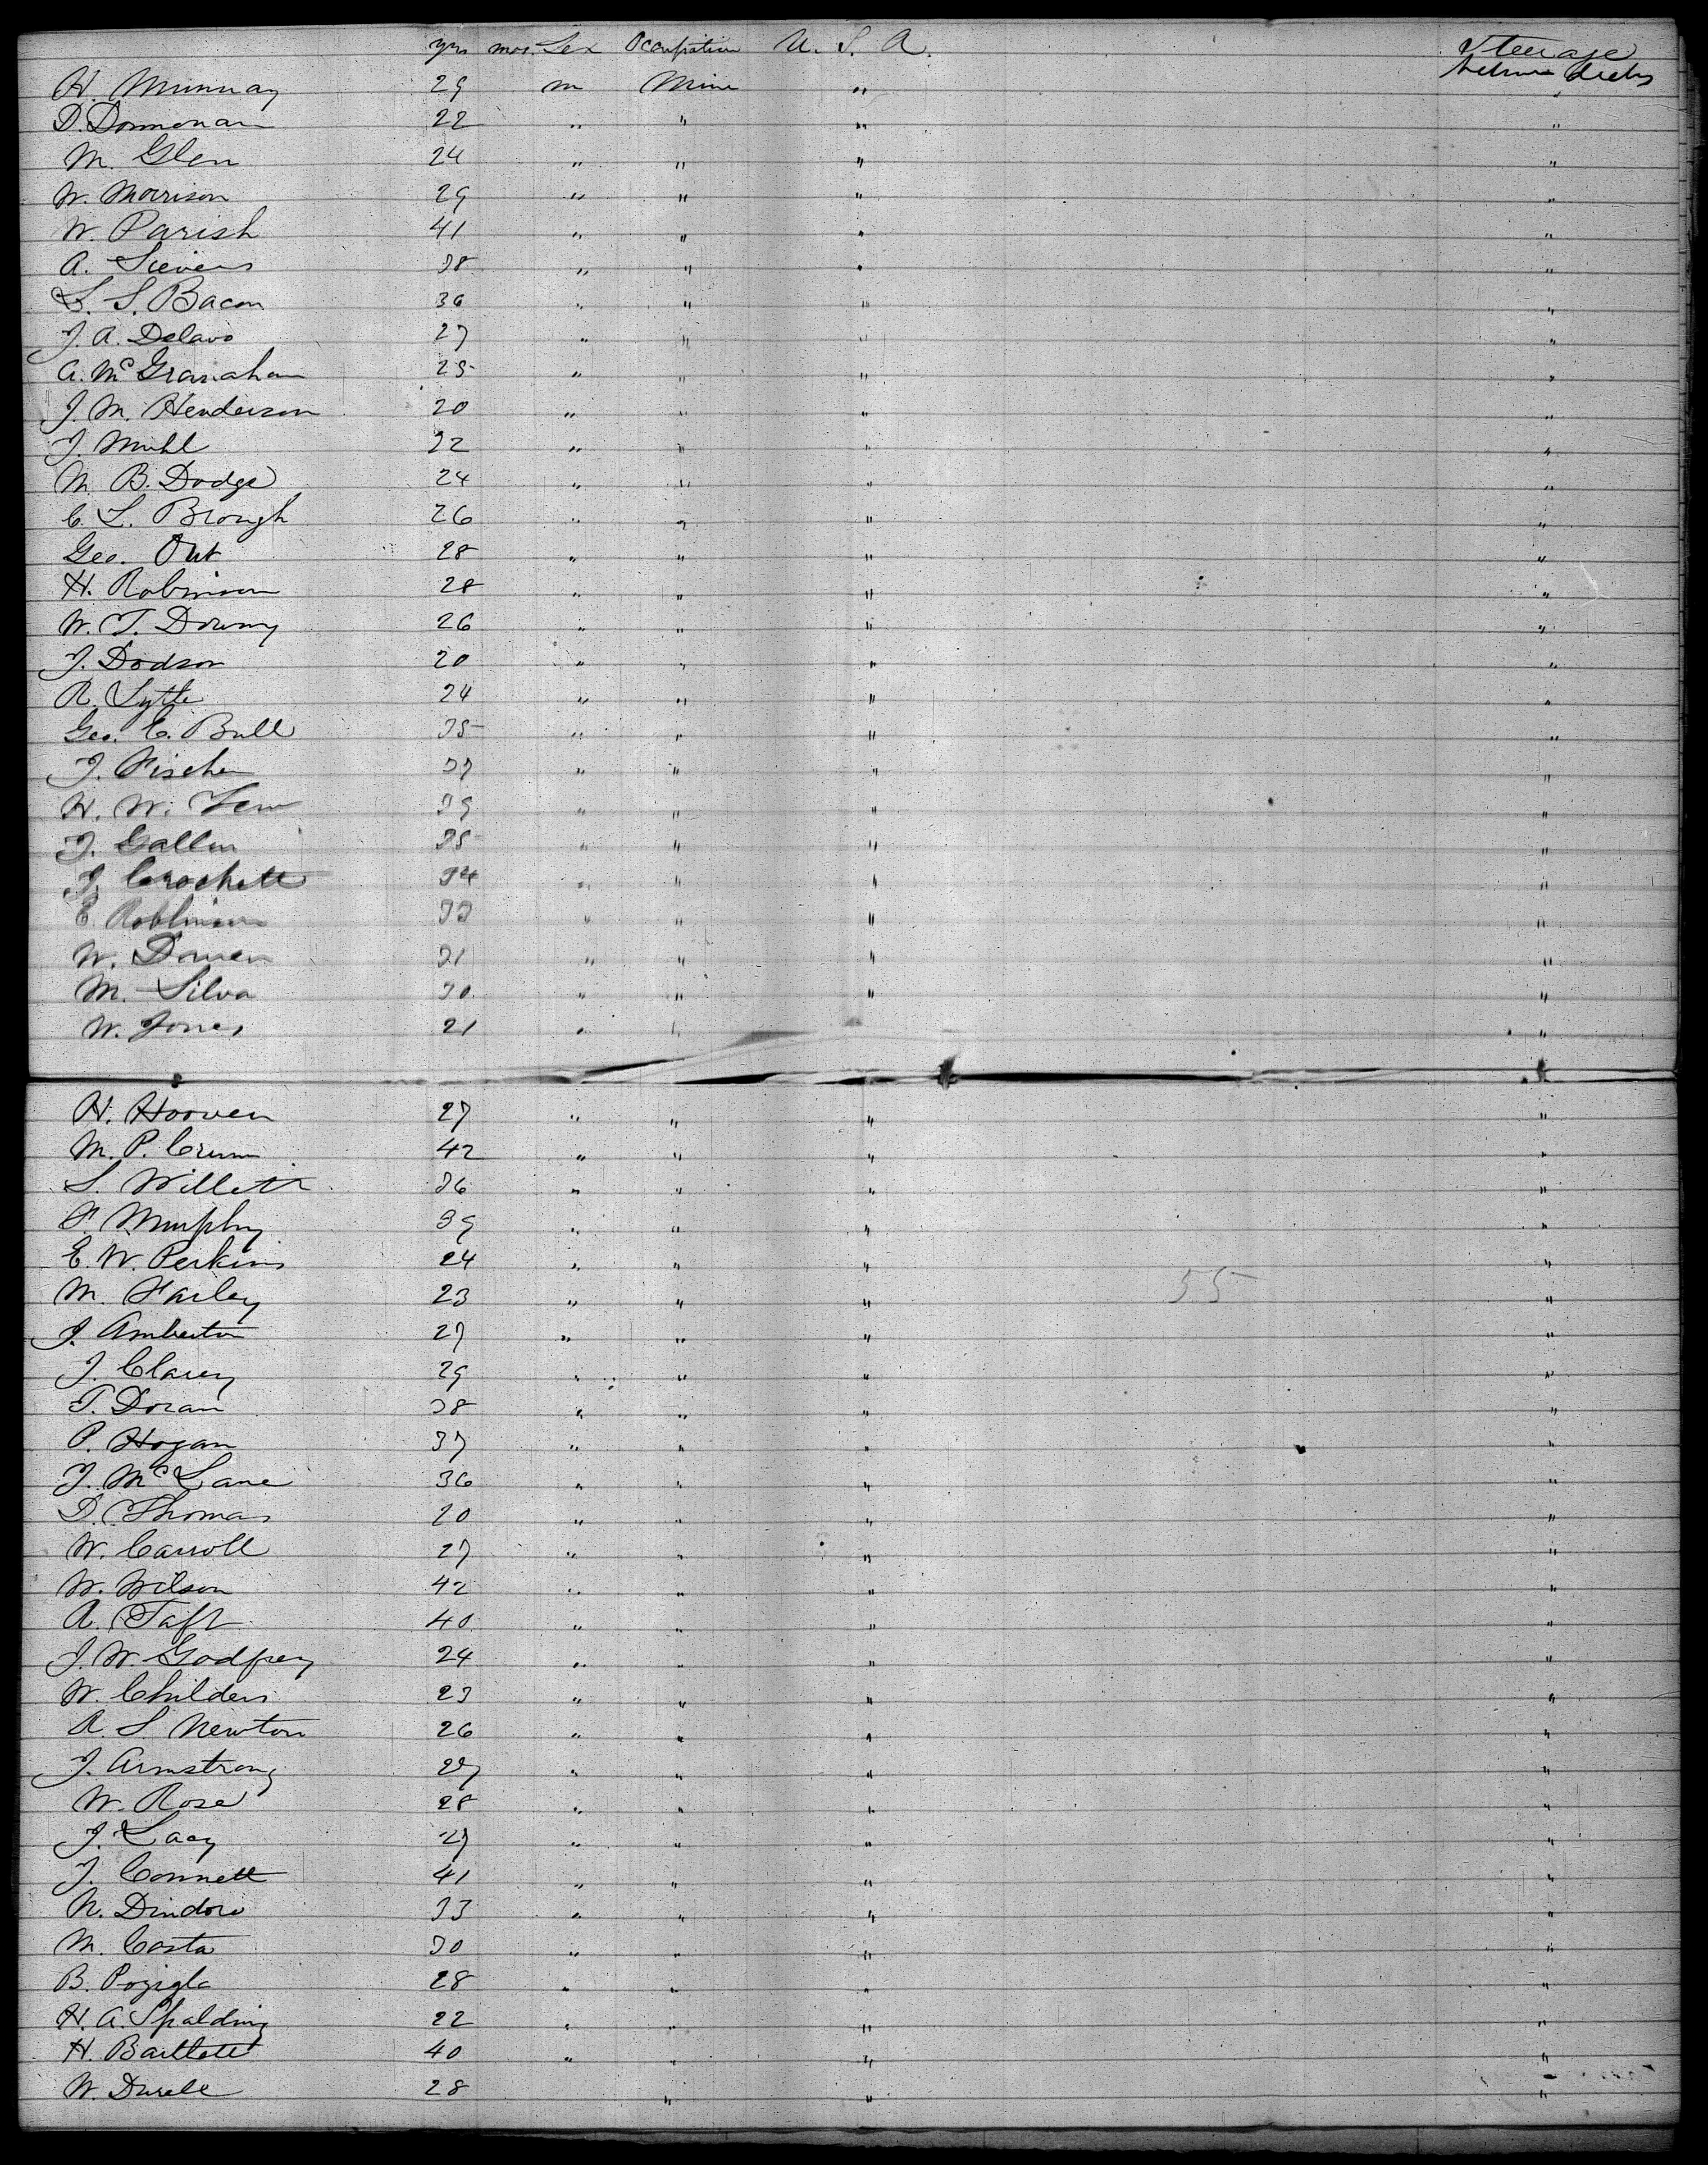 yrs mos. Sex Occupation U. S. A. Steerage
between decks
H. Murray 29 m Mine " "
D. Donnovan 22 " " " "
M. Glen 24 " " " "
W. Morrison 29 " " " "
W. Parish 41 " " " "
A. Sievens 38 " " " "
L. S. Bacon 36 " " " "
J. A. Delavo 27 " " " "
A. McGranahan 25 " " " "
J. M. Henderson 20 " " " "
J. Muhl 22 " " " "
M. B. Dodge 24 " " " "
C. L. Brough 26 " " " "
Geo. Ott 28 " " " "
H. Robinson 28 " " " "
W. T. Downy 26 " " " "
J. Dodson 20 " " " "
R. Lytte 24 " " " "
Geo. C. Bull 35 " " " "
J. Fischer 37 " " " "
H. W. 39 " " " "
J. Gallen 35 " " " "
J. Crockett 34 " " " "
E Robbinson 33 " " " "
W. Dowen 31 " " " "
M. Silva 30 " " " "
W. Jones 21 " " " "
H. Hooven 27 " " " "
M. P. Crum 42 " " " "
S. Willett 36 " " " "
F. Murphy 39 " " " "
E. W. Perkins 24 " " " "
M. Farley 23 " " " 55 "
J. Amberton 27 " " " "
J. Clarey 29 " " " "
T. Doran 38 " " " "
P. Hogan 37 " " " "
J. McLane 36 " " " "
D. Thomas 20 " " " "
W. Carroll 27 " " " "
W. Wilson 42 " " " "
A. Taft 40 " " " "
J. W. Godfrey 24 " " " "
W. Childers 23 " " " "
A. S. Newton 26 " " " "
J. Armstrong 27 " " " "
W. Rose 28 " " " "
J. Lacy 27 " " " "
J. Connett 41 " " " "
N. Dindoro 33 " " " "
M. Costa 30 " " " "
B. Pozigla 28 " " " "
H. A. Spalding 22 " " " "
H. Bartlett 40 " " " "
W. Durell 28 " " "